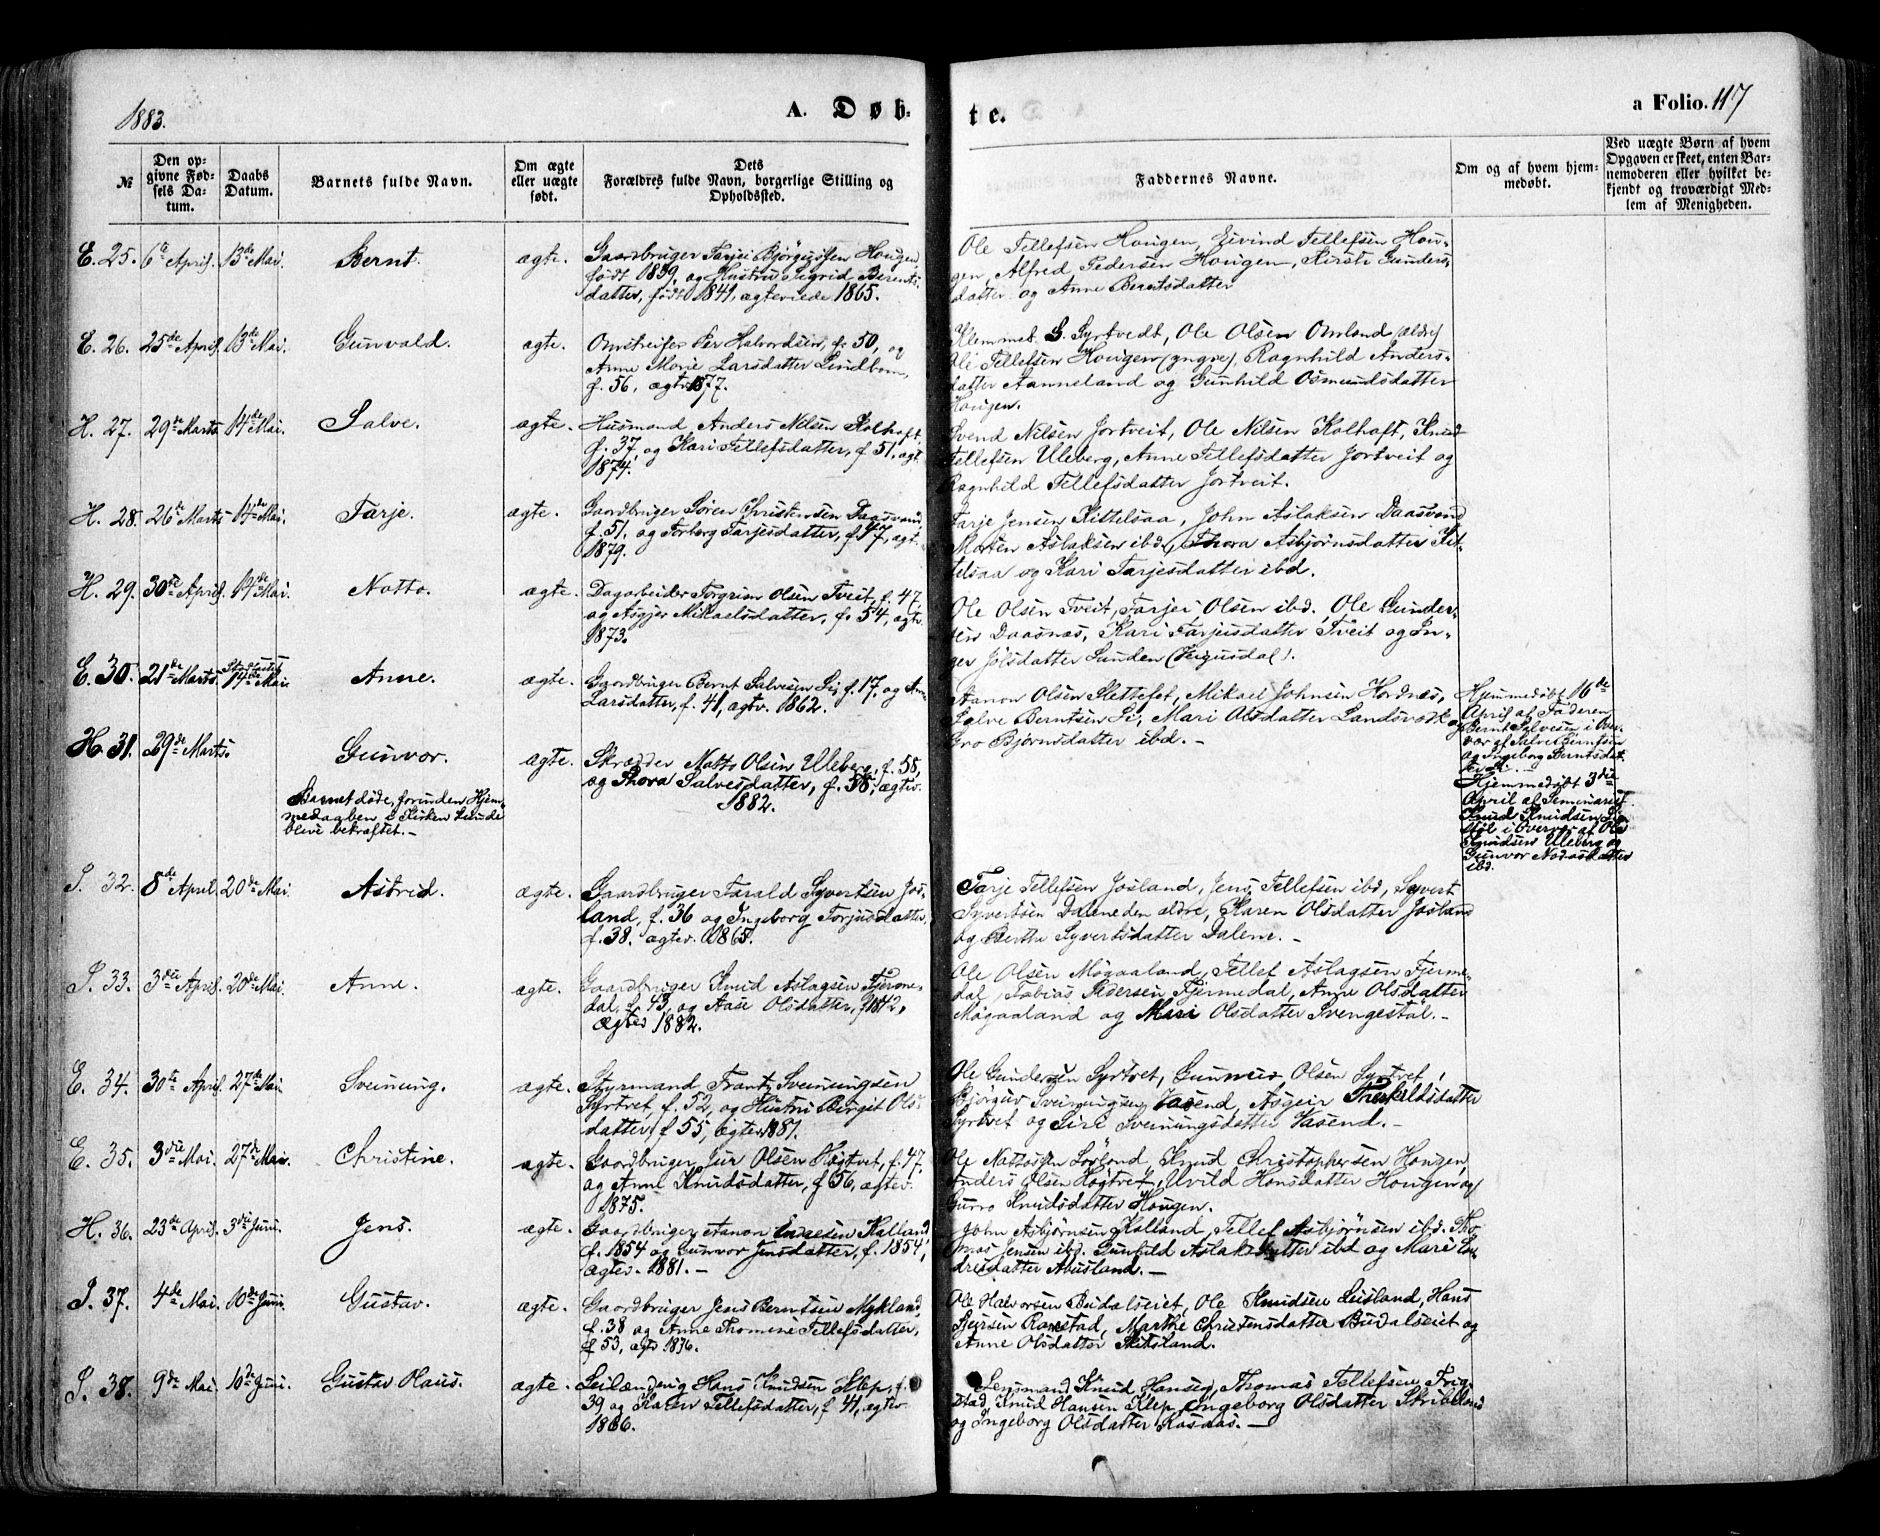 1883.
A. Døb-
te.
a Folio. 117
№
Den op-
givne Fød-
sels Da-
tum.
Daabs
Datum.
Barnets fulde Navn.
Om ægte
eller uægte
født.
Dets
Forældres fulde Navn, borgerlige Stilling og
Opholdssted.
Faddernes Navne.
Om og af hvem hjem-
medøbt.
Ved uægte Børn af hvem
Opgaven er skeet, enten Bar-
nemoderen eller hvilket be-
kjendt og troværdigt Med-
lem af Menigheden.
E. 25. 6te April. 13de Mai. Bernt. ægte.
Gaardbruger Tarjei Bjørgusen Hougen
født 1839, og Hustru Sigrid Berents-
datter, født 1841, ægteviede 1865.
Ole Tellefsen Hougen, Eivind Tellefsen Hou-
gen, Alfred Pedersen Hougen, Kirsti Gunders-
datter og Anne Berntsdatter
E. 26. 25de April. 13de Mai. Gunvald. ægte.
Omstreifer Per Halvordsen, f. 50, og
Anne Marie Larsdatter Lindbom,
f. 56, ægtev. 1877.
Klemmet G. Syrtvedt, Ole Olsen Omland (ældre)
Ole Tellefsen Hougen (yngre), Ragnhild Anders-
datter Aanneland og Gunhild Osmundsdatter
Hougen.
H. 27. 29de Marts. 14de Mai. Salve. ægte.
Husmand Anders Nilsen Kolhoft,
f. 37, og Kari Tellefsdatter, f. 51, ægt.
1874.
Svend Nilsen Jortveit, Ole Nilsen Kolhoft, Knud
Tellefsen Uleberg, Anne Tellefsdatter Jortveit og
Ragnhild Tellefsdatter Jortveit.
H. 28. 26de Marts 14de Mai. Tarje. ægte.
Gaardbruger Sören Christensen Daasvand
f. 51, og Torborg Tarjesdatter, f. 47, ægt.
1879.
Tarje Jensen Kittelsaa, John Aslaksen Daasvand
Morten Aslaksen ibd, Thora Asbjørnsdatter Kit-
telsaa og Kari Tarjesdatter ibd.
H. 29. 30de April. 14de Mai. Notto. ægte.
Dagarbeider Torgrim Olsen Tveit, f. 47,
og Asgjer Mikaelsdatter, f. 54, ægtv.
1873.
Ole Olsen Tveit, Tarjei Olsen ibd, Ole Gunder-
sen Daasnæs, Kari Tarjusdatter Tveit og In-
ger Jølsdatter Lunden (Vegusdal).
E. 30. 21de Marts. 14de Mai. Anne. ægte.
Gaardbruger Bernt Salvesen Li, f. 17, og Anne
Larsdatter, f. 41, ægtv. 1862.
Aanon Olsen Slettefet, Mikael Johnsen Hordnæs,
Salve Berntsen Li, Mari Olsdatter Landsvedk og
Gro Bjørnsdatter ibd. -
Hjemmedøbt 16de
April af Faderen
Bernt Salvesen i Over-
vær af Salve Berntsen
og Ingeborg Berntsdat-
H. 31. 29de Marts. Gunvor. ægte.
Barnet døde, forinden Hjem-
medaaben i Kirken kunde
blive bekræftet. -
Skrædder Notto Olsen Uleberg, f. 58,
og Thora Salvesdatter, f. 58, ægtev.
1882.
Hjemmedøbt 3die
April af Seminarist
Knud Knudsen
i Overvær af Ole
Knudsen Uleberg og
Gunvor
ibd.
I. 32. 8de April. 20de Mai. Astrid. ægte.
Gaardbruger Tarald Syvertsen Jos-
land, f. 36 og Ingeborg Torjusdatter,
f. 38. ægtev. 1865.
Tarje Tellefsen Josland, Jens Tellefsen ibd, Syvert
Syvertsen Dalene den ældre, Karen Olsdatter Josland
og Berthe Syvertsdatter Dalene. -
I. 33. 3die April. 20de Mai. Anne. ægte.
Gaardbruger Knud Aslagsen Fjerme-
dal, f. 43, og Aase Olsdatter, f. 1842,
Ægtev 1882.
Ole Olsen Møgaaland, Tellef Aslagsen Fjerme-
dal, Tobias Pedersen Fjermedal, Anne Olsdatter
Møgaaland og Mari Olsdatter Svengestøl. -
E. 34. 30te April. 27de Mai. Sveinung. ægte.
Styrmand Frantz Sveinungsen
Syrtvet, f. 52, og Hustru Birgit Ols-
datter, f. 55, ægtev 1881.
Ole Gundersen Syrtvet, Gunnus Olsen Syrtvet,
Bjørguv Sveinungsen Vasend, Asgeir
Syrtvet og Siri Sveinungsdatter Vasend. -
E. 35. 3die Mai. 27de Mai. Christine. ægte.
Gaardbruger Jur Olsen Høgtvet, f. 47,
og Anne Knudsdatter, f 56, ægtev.
1875.
Ole Nattosøn Sørland, Knud Christophersen Hougen,
Anders Olsen Høgtvet, Uvild Hansdatter Hougen og
Gurro Knudsdatter Hougen.
H. 36. 23de April. 3die Juni. Jens. ægte.
Gaardbruger Aanon Kalland,
f. 1854 og Gunvor Jensdatter, f. 1854,
ægtev. 1881. -
John Asbjørnsen Kalland, Tellef Asbjørnsen ibd. Tho-
mas Jensen ibd. Gunhild Aslaksdatter ibd og Mari En-
dresdatter Abusland. -
I. 37. 4de Mai. 10de Juni. Gustav. ægte.
Gaardbruger Jens Berntsen Mykland,
f. 38 og Anne Thomine Tellefsdatter,
f 53, ægtv 1876.
Ole Halvorsen Budalseiet, Ole Knudsen Leisland, Hans
Rosestad, Marthe Christensdatter Budalseiet og
Anne Olsdatter Skibsland.
I. 38. 9de Mai. 10de Juni. Gustav Olaus. ægte.
Leilænding Hans Knudsen Klep, f.
39 og Karen Tellefsdatter, f 41, ægtev
1866.
Lensmand Knud Hansen, Thomas Tellefsen Trig-
stad, Knud Hansen Klep, Ingeborg Olsdatter Skribeland
og Ingeborg Olsdatter Rosaas. -